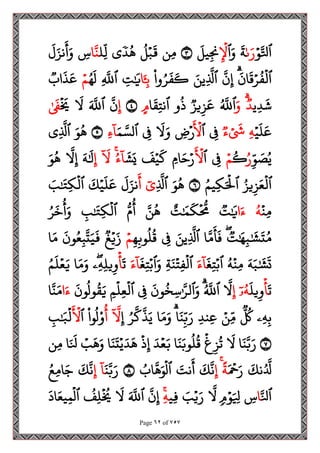 ٱلتَّوْرَىٰةَ وَٱلْإِنجِيلَ ٣ مِن قَبْلُ هُدٗى لِّلنَّاسِ وَأَنزَلَ
ٱلْفُرْقَانَۗ إِنَّ ٱلَّذِينَ كَفَرُواْ بِـَٔايَٰتِ ٱللَّهِ لَهُمْ عَذَابٞ
شَدِيدٞۗ وَٱللَّهُ عَزِيزٞ ذُو ٱنتِقَامٍ ٤ إِنَّ ٱللَّهَ لَا يَخْفَىٰ
عَلَيْهِ شَيْءٞ فِي ٱلْأَرْضِ وَلَا فِي ٱلسَّمَآءِ ٥ هُوَ ٱلَّذِي
يُصَوِّرُكُمْ فِي ٱلْأَرْحَامِ كَيْفَ يَشَآءُۚ لَآ إِلَٰهَ إِلَّا هُوَ
ٱلْعَزِيزُ ٱلْحَكِيمُ ٦ هُوَ ٱلَّذِيٓ أَنزَلَ عَلَيْكَ ٱلْكِتَٰبَ
مِنْهُ ءَايَٰتٞ مُّحْكَمَٰتٌ هُنَّ أُمُّ ٱلْكِتَٰبِ وَأُخَرُ
مُتَشَٰبِهَٰتٞۖ فَأَمَّا ٱلَّذِينَ فِي قُلُوبِهِمْ زَيْغٞ فَيَتَّبِعُونَ مَا
تَشَٰبَهَ مِنْهُ ٱبْتِغَآءَ ٱلْفِتْنَةِ وَٱبْتِغَآءَ تَأْوِيلِهِۦۖ وَمَا يَعْلَمُ
تَأْوِيلَهُۥٓ إِلَّا ٱللَّهُۗ وَٱلرَّٰسِخُونَ فِي ٱلْعِلْمِ يَقُولُونَ ءَامَنَّا
بِهِۦ كُلّٞ مِّنْ عِندِ رَبِّنَاۗ وَمَا يَذَّكَّرُ إِلَّآ أُوْلُواْ ٱلْأَلْبَٰبِ
٧ رَبَّنَا لَا تُزِغْ قُلُوبَنَا بَعْدَ إِذْ هَدَيْتَنَا وَهَبْ لَنَا مِن
لَّدُنكَ رَحْمَةًۚ إِنَّكَ أَنتَ ٱلْوَهَّابُ ٨ رَبَّنَآ إِنَّكَ جَامِعُ
ٱلنَّاسِ لِيَوْمٖ لَّا رَيْبَ فِيهِۚ إِنَّ ٱللَّهَ لَا يُخْلِفُ ٱلْمِيعَادَ
Page ٦٢ of ٧٥٧